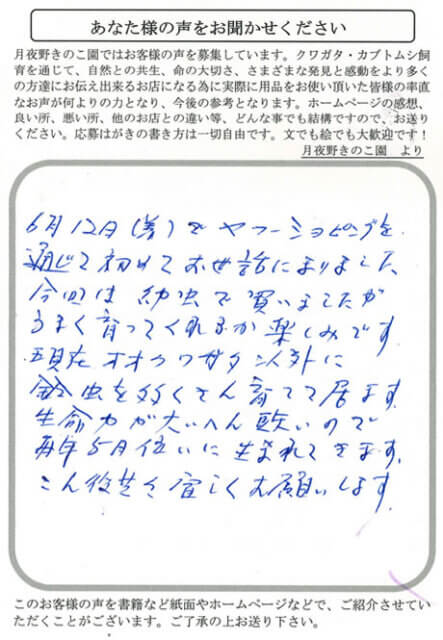 あなた様の声をお聞かせください
月夜野きのこ園ではお客様の声を募集しています。クワガタ・カブトムシ飼
育を通じて、自然との共生、命の大切さ、さまざまな発見と感動をより多く
の方達にお伝え出来るお店になる為に実際に用品をお使い頂いた皆様の率直
なお声が何よりの力となり、今後の参考となります。ホームページの感想、
良い所、悪い所、他のお店との違い等、どんな事でも結構ですので、お送り
ください。応募はがきの書き方は一切自由です。文でも絵でも大歓迎です！
月夜野きのこ園　より
6月12日(着)でヤフーショピングを
通じて初めてお世話になりました、
今回は幼虫で買いましたが
うまく育ってくれるか楽しみです
現在オオクワガタ以外に
鈴虫を多くさん育てて居ます.
生命力がたいへん強いので
毎年5月位いに生まれてきます.
こん後共々宜しくお願いします.
このお客様の声を書籍など紙面やホームページなどで、ご紹介させてい
ただくことがございます。ご了承の上お送り下さい。